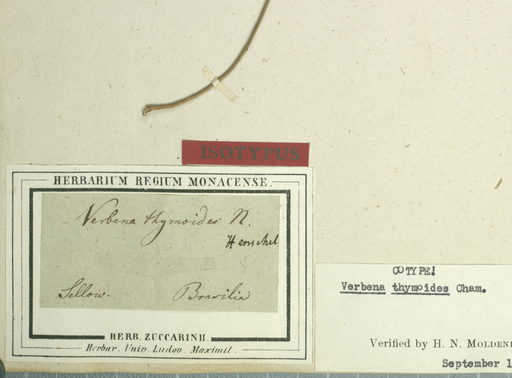 ISOTYPUS
HERBARIUM REGIUM MONACENSE.
Verbena thymoides N.
Herschel
Sellow. Brasilia
HERB. ZUCCARINII.
Herbar. Univ. Ludov. Maximil.
COTYPE!
Verbena thymoides Cham.
Verified by H. N. MOLDEN
September 1